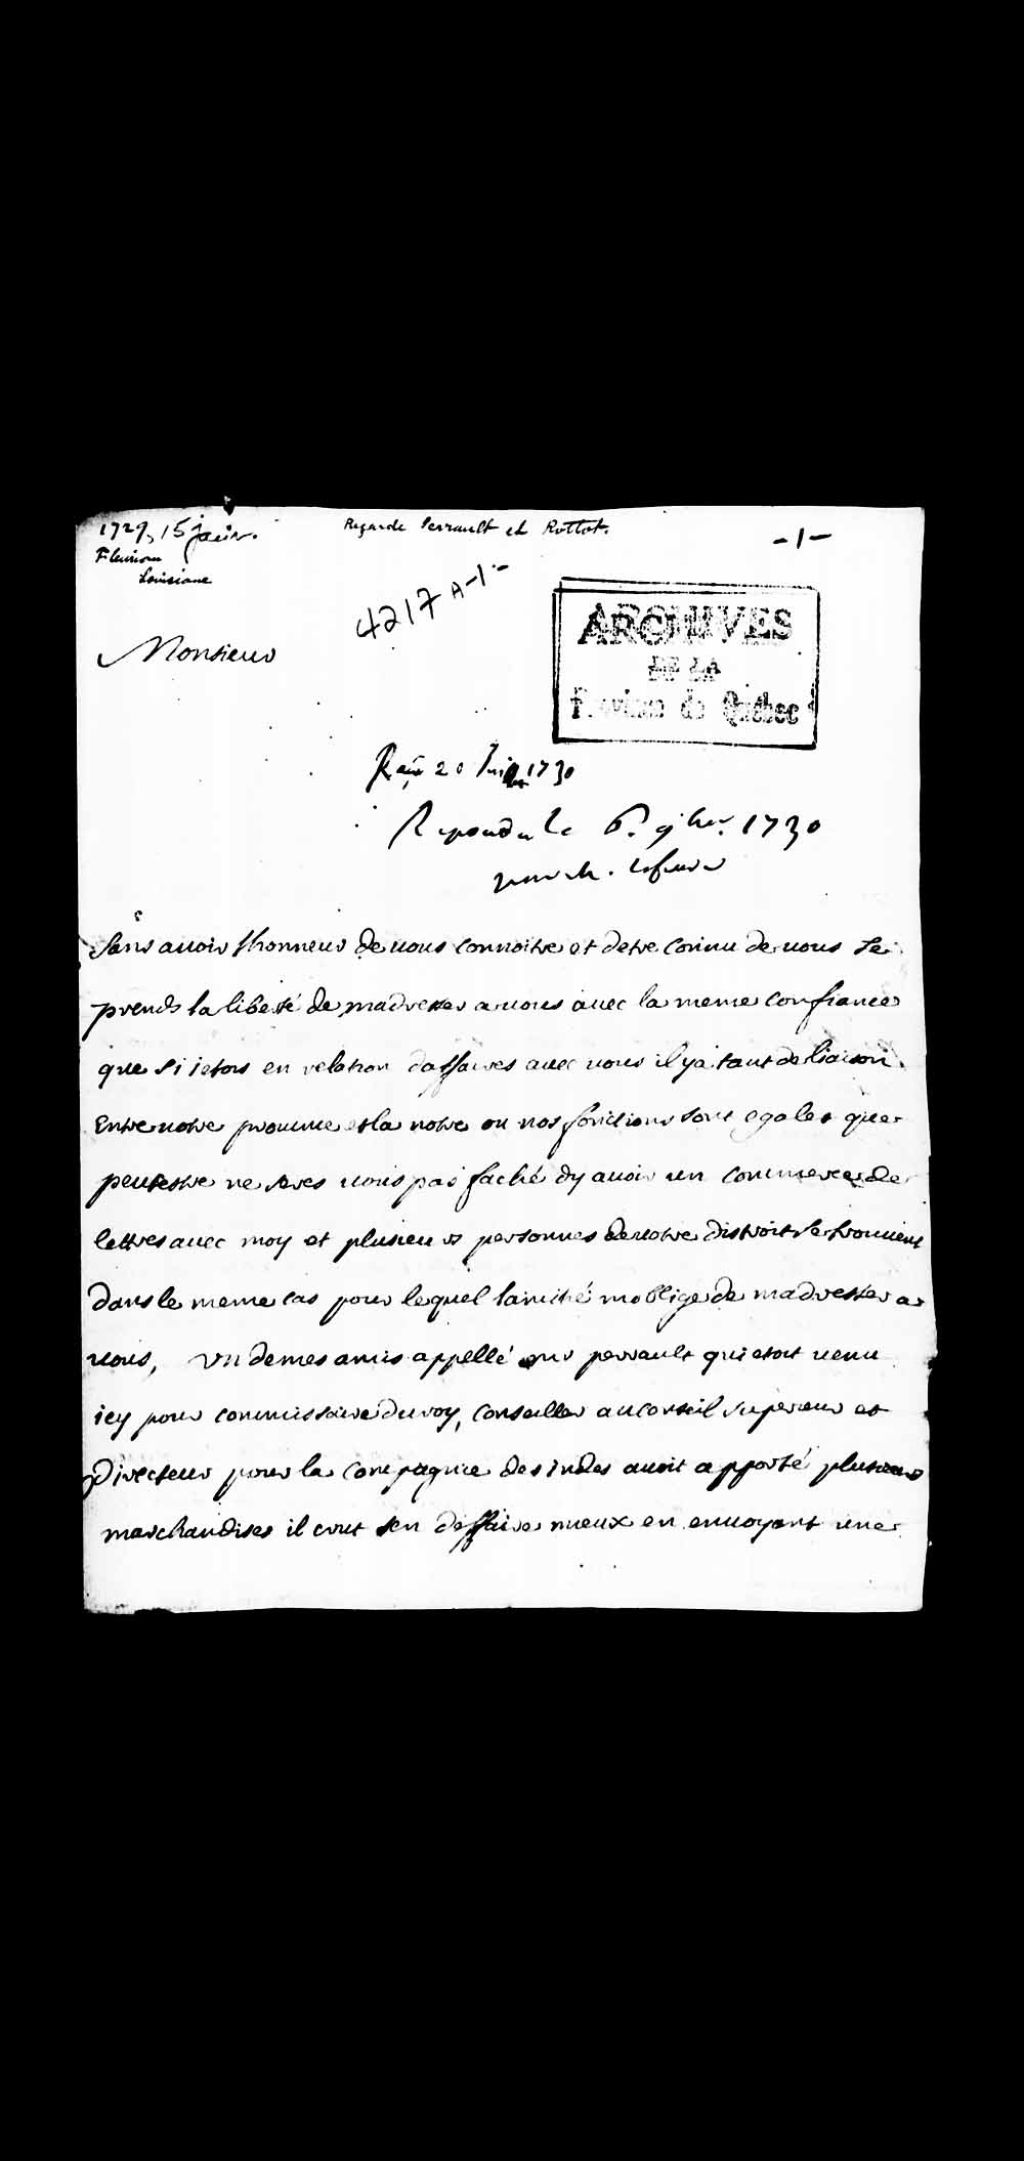 1729, 15 janv.
Regarde Perrault et Rottot.
-1-
Fleuriau
Louisiane
4217 A-1-
ARCHIVES
DE LA
Province de Québec
Monsieur
20 1730
Repondu le 6. 9bre. 1730
Sans auoir lhonneur de uous connoitre et detre connu de uous Je
prends la liberté de madresser a uous auec la meme confiance
que si jetois en relation daffaires auec uous il ya tant de liaison
Entre uotre prouince et la notre ou nos fonctions sont egales que
peutestre ne seres uous pas faché dy auoir un commerce de
lettres auec moy et plusieurs personnes de uotre distroit se trouuent
dans le meme cas pour lequel lamitié moblige de madresser a
uous, un de mes amis appellé mr perrault qui etoit uenu
icy pour commissaire du roy, conseiller au conseil superieur et
Directeur pour la Compagnie des indes auoit apporté plusieurs
marchandises il crut sen deffaire mieux en enuoyant une